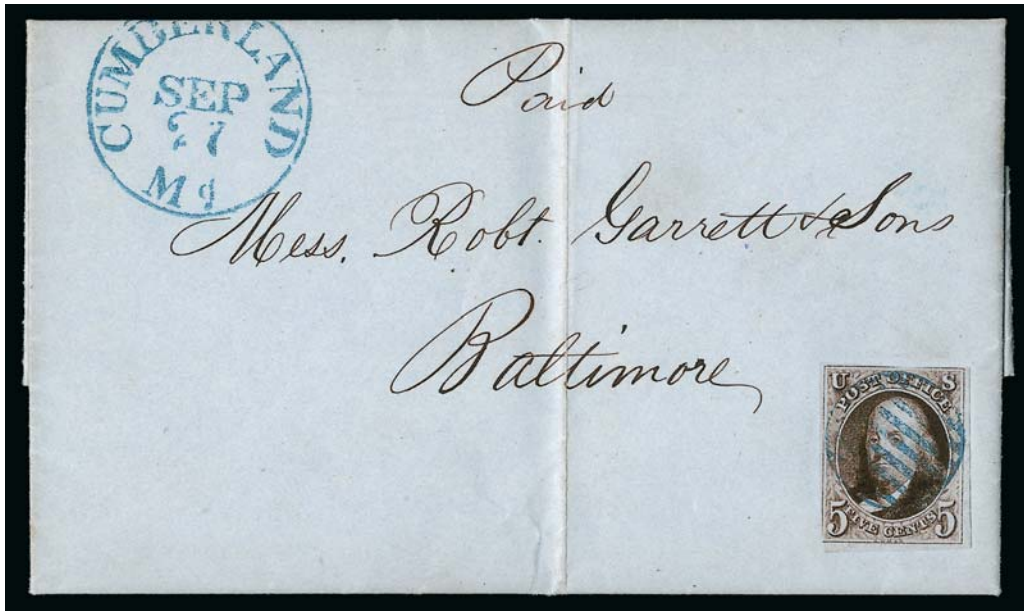 CUMBERLAND
SEP
27
Md
Paid
Mess. Robt. Garrett & Sons
Baltimore
U S
POST OFFICE
5 FIVE CENTS 5